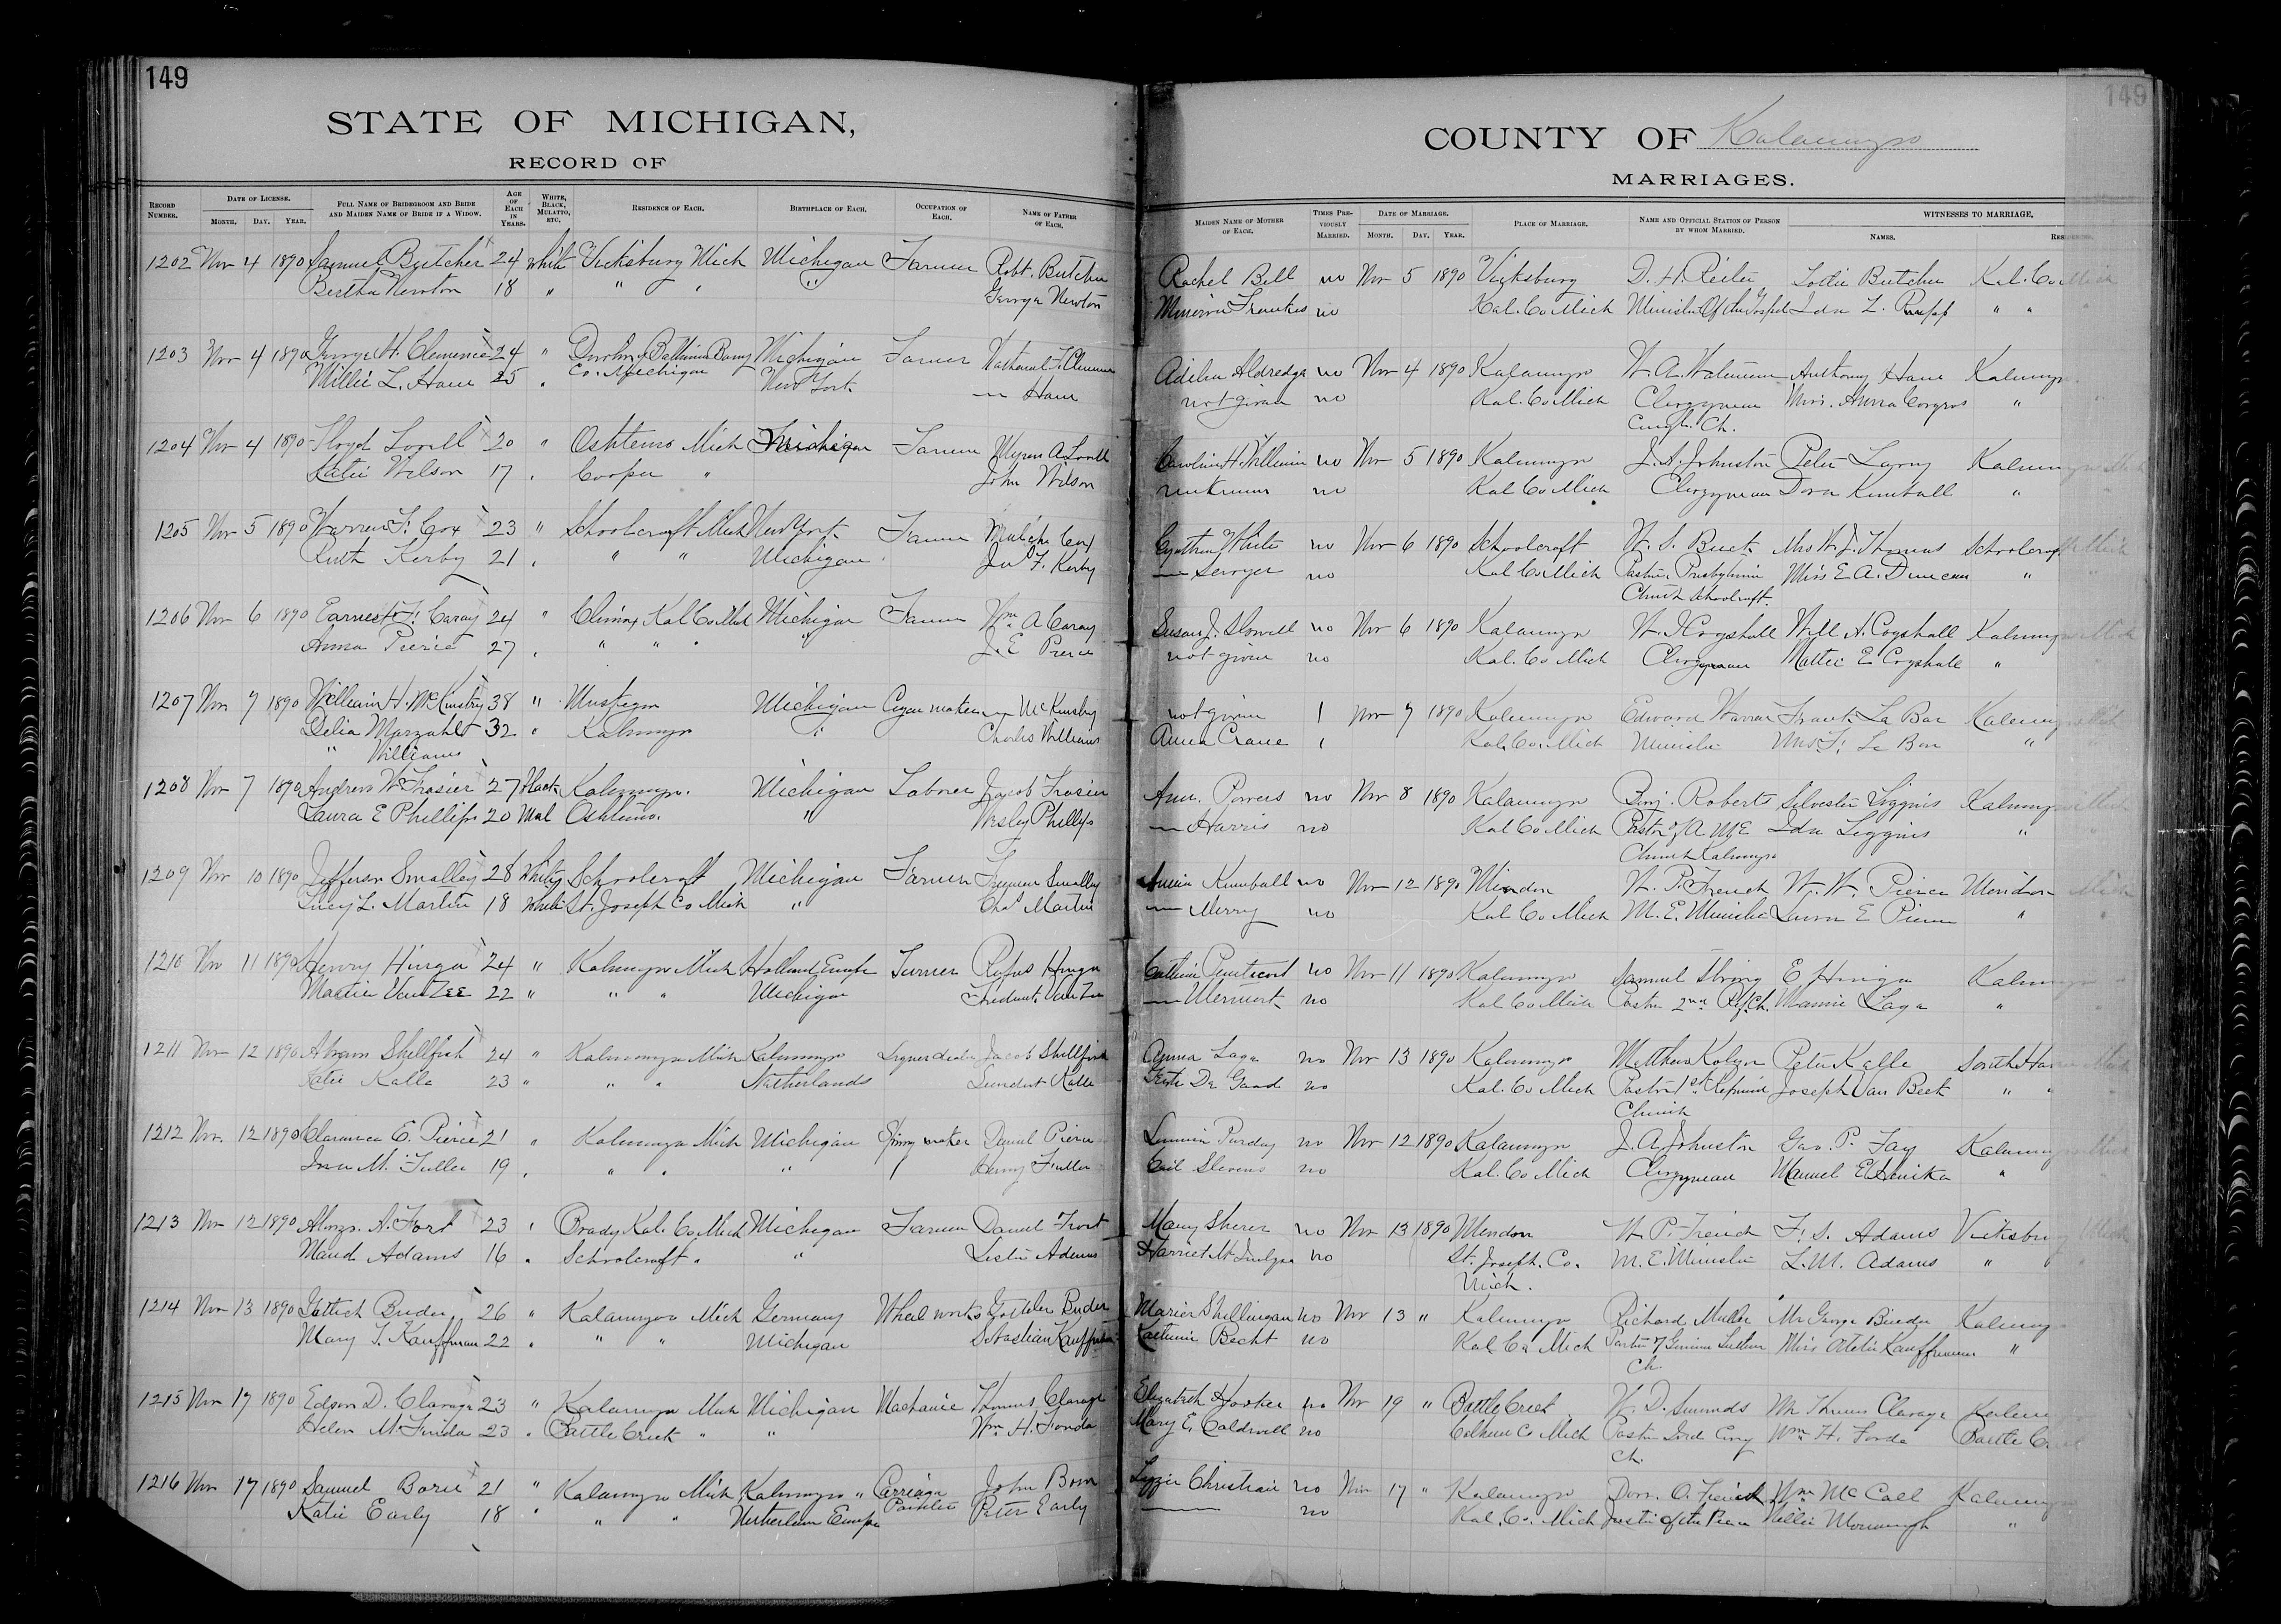 149
STATE OF MICHIGAN,
RECORD OF
RECORD NUMBER. DATE OF LICENSE. MONTH. DAY. YEAR. FULL NAME OF BRIDEGROOM AND BRIDE AND MAIDEN NAME OF BRIDE IF A WIDOW. AGE OF EACH IN YEARS. WHITE, BLACK, MULATTO, ETC. RESIDENCE OF EACH. BIRTHPLACE OF EACH. OCCUPATION OF EACH. NAME OF FATHER OF EACH.
1202 Nov 4 1890 Samuel Butcher 24 White Vicksburg Mich Michigan Farmer Robt. Butcher
Bertha Newton 18 " " " " George Newton
1203 Nov 4 1890 George H. Clemence 24 " Baltimore Barry Michigan Farmer Nathaniel F. Clemence
Millie L. Hane 25 " Co. Michigan New York — Hane
1204 Nov 4 1890 Floyd Lovell 20 " Oshtemo Mich Michigan Farmer Myron A Lovell
Katie Wilson 17 " Cooper " John Wilson
1205 Nov 5 1890 Warren F. Cox 23 " Schoolcraft Mich New York Farmer Cox
Ruth Kerby 21 " " " Michigan Jno F. Kerby
1206 Nov 6 1890 Earnest F. Caray 24 " Climax Kal Co Mich Michigan Farmer Wm A Caray
Anna Pierce 27 " " " " " J. E Pierce
1207 Nov 7 1890 William H. McKinstry 38 " Muskegon Michigan Cigar maker — McKinstry
Delia Marzahlt 32 " Kalamazoo " Charles Williams
" Williams
1208 Nov 7 1890 Andrew W Frasier 27 Black Kalamazoo Michigan Laborer Jacob Frasier
Laura E Phillips 20 Mul Oshtemo. " Wesley Phillips
1209 Nov 10 1890 Jefferson Smalley 28 White Schoolcraft Michigan Farmer Freeman Smalley
Lucy L. Martin 18 White St. Joseph Co Mich " Chas Martin
1210 Nov 11 1890 Henry Hinga 24 " Kalamazoo Mich Holland Europe Farmer Rufus Hinga
Mattie Van Zee 22 " " " Michigan Van Zee
1211 Nov 12 1890 Abram Shellfish 24 " Kalamazoo Mich Kalamazoo Jacob Shellfish
Katie Kalle 23 " " " Netherlands Leendert Kalle
1212 Nov. 12 1890 Clarence E. Pierce 21 " Kalamazoo Mich Michigan Spring maker Daniel Pierce
Ina M. Fuller 19 " " " " Henry Fuller
1213 Nov 12 1890 Alonzo. A. Fort 23 " Brady Kal. Co Mich Michigan Farmer Daniel Fort
Maud Adams 16 " Schoolcraft " " Leslie Adams
1214 Nov 13 1890 Buder 26 " Kalamazoo Mich Germany Wheel works Buder
Mary T. Kauffman 22 " " " Michigan Sebastian Kauffman
1215 Nov 17 1890 Edson D. Clarage 23 " Kalamazoo Mich Michigan Machanic Thomas Clarage
Helen M. Fonda 23 " Battle Creek " " Wm. H. Fonda
1216 Nov 17 1890 Samuel Born 21 " Kalamazoo Mich Kalamazoo " Carriage John Born
Katie Early 18 " " " Netherlands Europe Painter Peter Early
149
COUNTY OF Kalamazoo
MARRIAGES.
MAIDEN NAME OF MOTHER OF EACH. TIMES PREVIOUSLY MARRIED. DATE OF MARRIAGE. MONTH. DAY. YEAR. PLACE OF MARRIAGE. NAME AND OFFICIAL STATION OF PERSON BY WHOM MARRIED. WITNESSES TO MARRIAGE. NAMES. RESIDENCE.
Rachel Bell no Nov 5 1890 Vicksburg Lottie Butcher Kal. Co Mich
no Kal. Co Mich Minister Of the Gospel Ida L. Rupp " "
Adelia Aldredge no Nov 4 1890 Kalamazoo W. A. Waterman Anthony Hane Kalamazoo
not given no Kal. Co Mich Clergyman Mrs. Anna "
Congl. Ch.
Caroline H. no Nov 5 1890 Kalamazoo J. A. Johnston Peter Kalamazoo Mich
unknown no Kal Co Mich Clergyman Dora Kimball "
Cynthia White no Nov 6 1890 Schoolcraft W. S. Buck Mrs W. J. Thomas Schoolcraft Mich
— Sawyer no Kal Co Mich Pastor Presbyterian Miss E A. Duncan "
Church Schoolcraft.
Susan J. no Nov 6 1890 Kalamazoo W. I Cogshall Will A. Cogshall Kalamazoo Mich
not given no Kal. Co Mich Clergyman Mattie E Cogshall "
not given 1 Nov 7 1890 Kalamazoo Edward Warren Frank La Bar Kalamazoo Mich
Anna Crane 1 Kal. Co. Mich Minister Mrs F. La Bar "
Ann. Powers no Nov 8 1890 Kalamazoo Benj. Roberts Silvester Liggins Kalamazoo Mich
— Harris no Kal Co Mich Pastor of A M E Ida Liggins "
Church Kalamazoo
Kimball no Nov 12 1890 Mendon W. P. French W. W. Pierce Mendon Mich
— Merry no Kal Co Mich M. E. Minister Laura E Pierce "
Pentecost no Nov 11 1890 Kalamazoo Samuel Strong E Hinga Kalamazoo "
no Kal Co Mich Pastor 2nd Ref. Ch. Mamie Laga "
Anna Laga no Nov 13 1890 Kalamazoo Matthew Kolyn Peter Kalle South Haven Mich
De Gaad no Kal. Co Mich Pastor 1st Reformed Joseph Van Beek " "
Church
Purday no Nov 12 1890 Kalamazoo J. A. Johnston Geo. P. Fay Kalamazoo Mich
Stevens no Kal. Co Mich Clergyman "
Mary Sherer no Nov 13 1890 Mendon W. P. French F. S. Adams Vicksburg Mich
Harriet M. no St. Joseph. Co. M. E. Minister L. M. Adams "
Mich.
no Nov 13 " Kalamazoo Richard Muller Mr George Buder Kalamazoo
Becht no Kal Co Mich Pastor of German Luthern Miss Kauffman "
Ch.
Elizabeth Hooker no Nov 19 " Battle Creek W. D. Simonds Mr Thomas Clarage Kalamazoo
Mary E. Caldwell no Calhoun Co Mich Pastor Ind Cong Wm. H. Fonda Battle Creek
Ch.
Lizzie Christian no Nov 17 " Kalamazoo O. French Wm Mc Call Kalamazoo
— no Kal. Co. Mich Justice of the Peace Nellie "